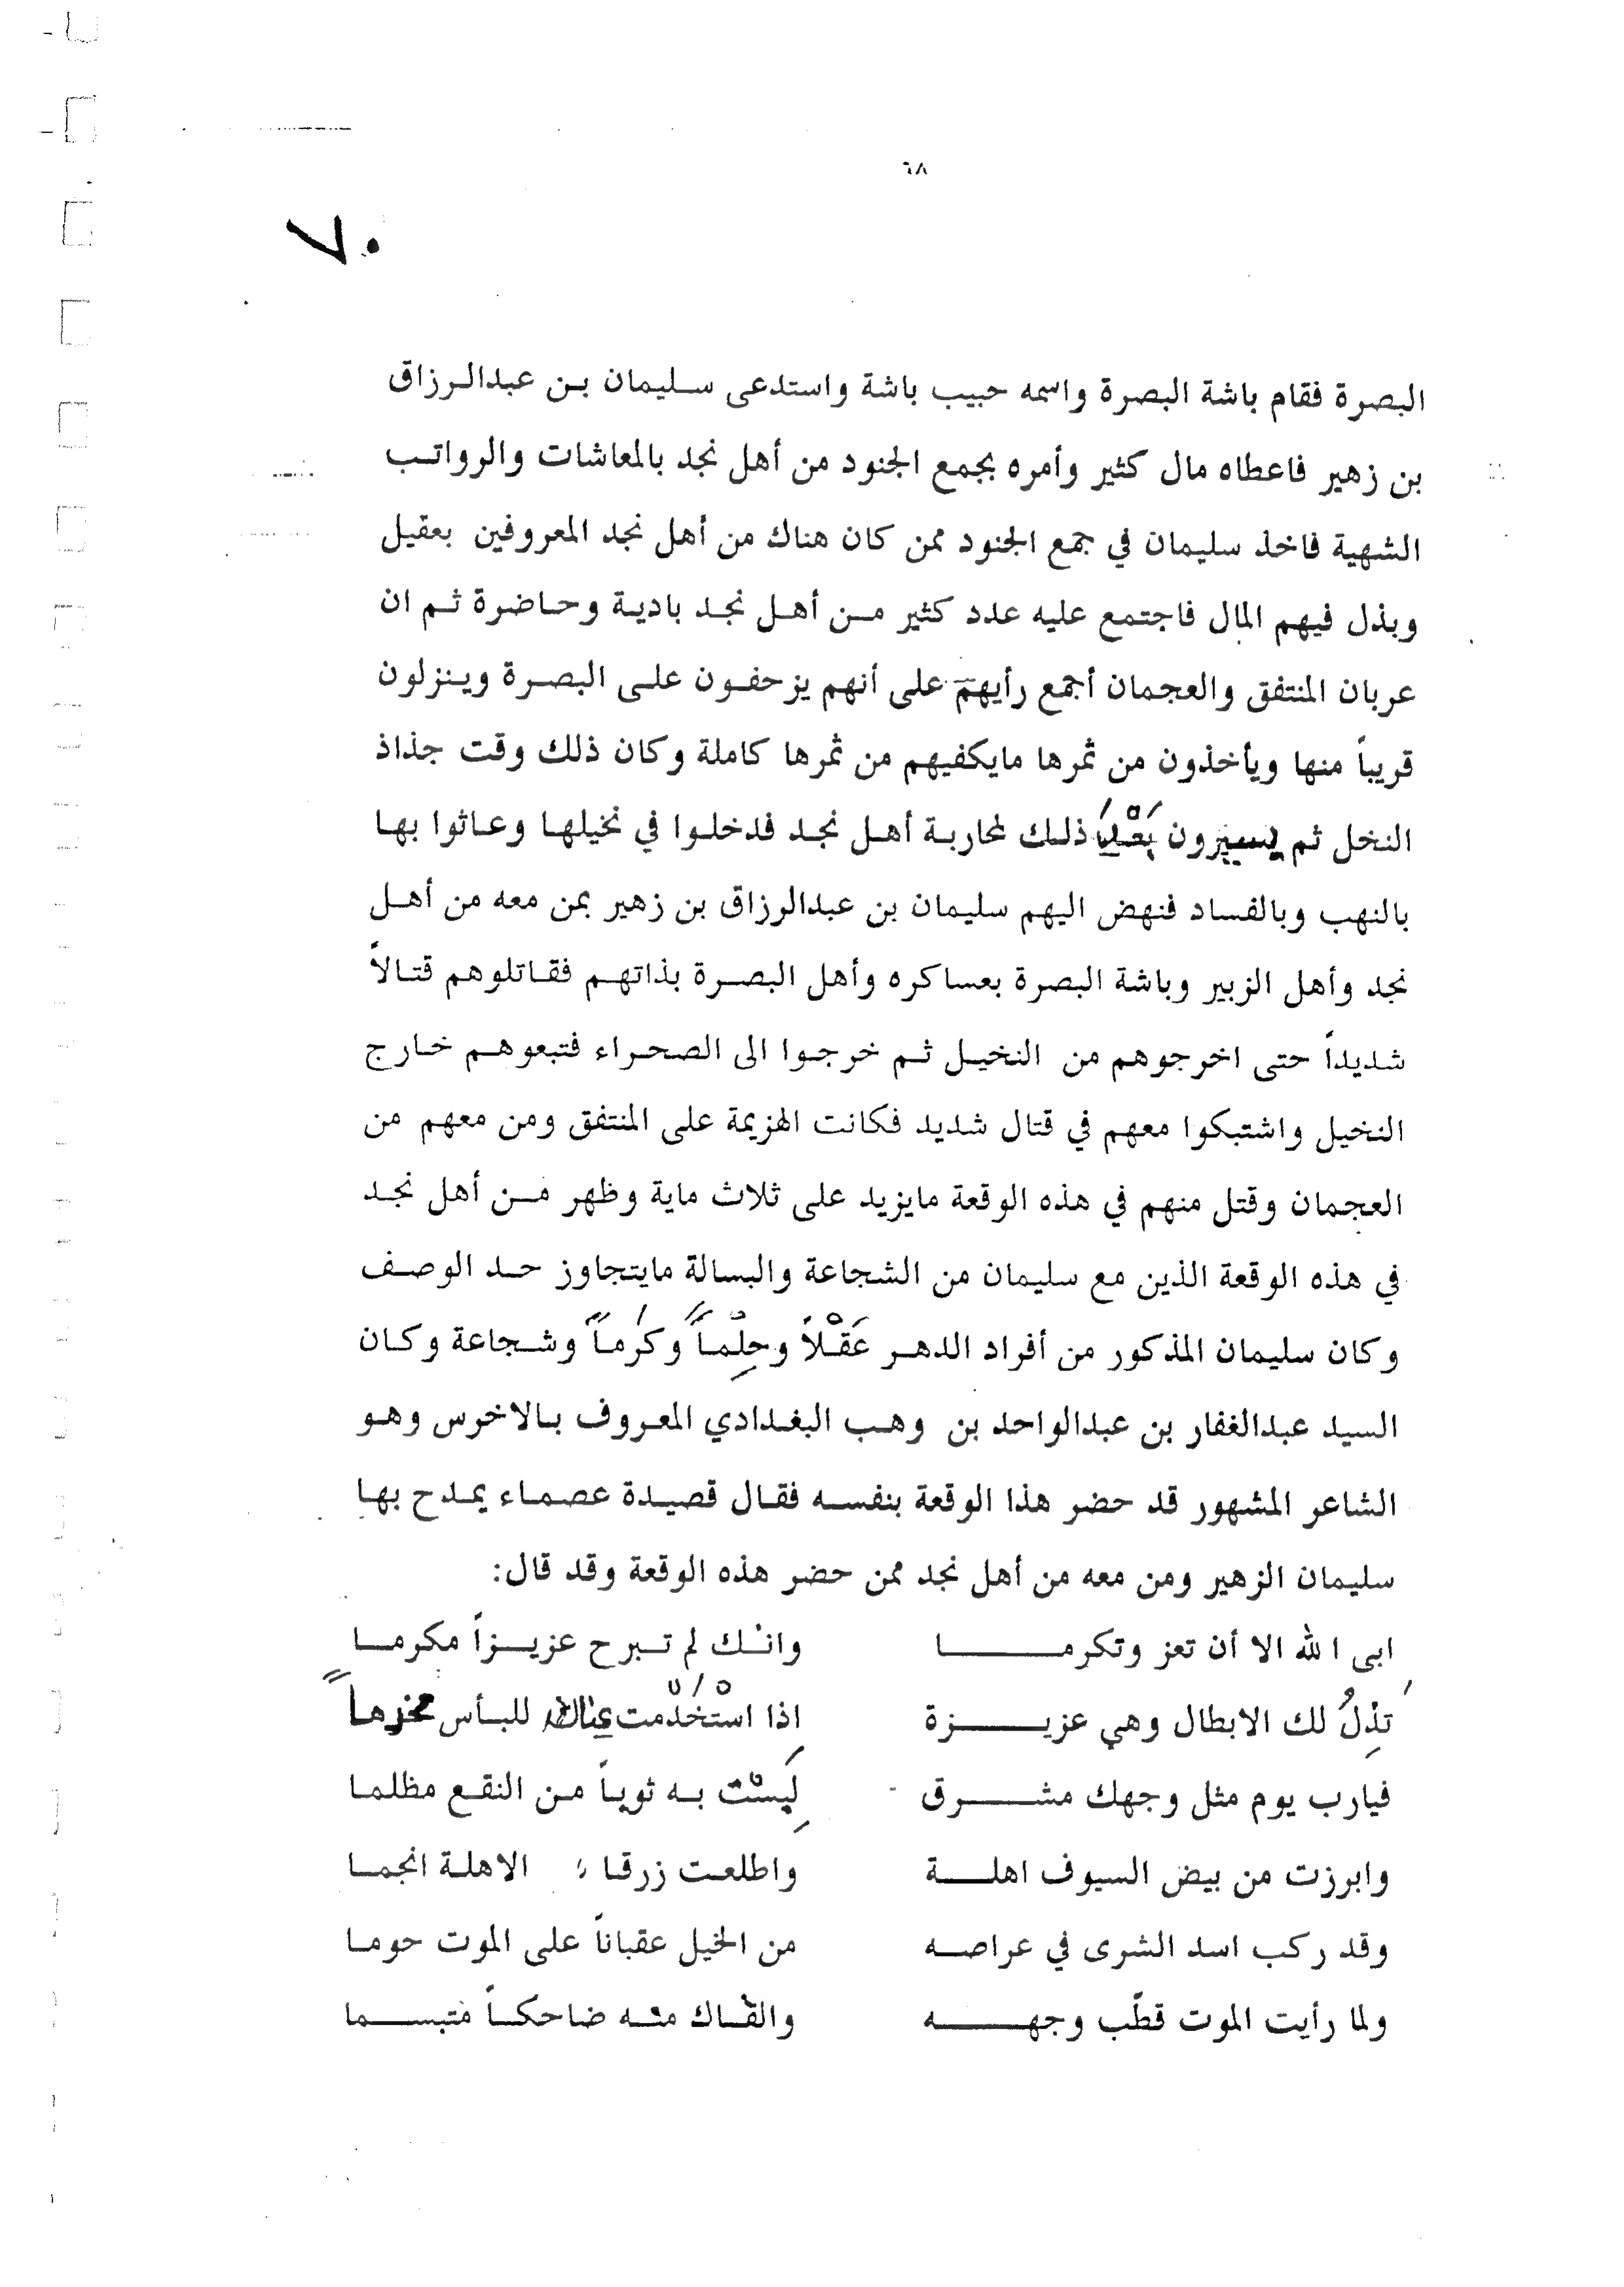 ٦٨
٧٠
البصرة فقام باشة البصرة واسمه حبيب باشة واستدعى سليمان بن عبدالرزاق
بن زهير فاعطاه مال كثير وأمره بجمع الجنود من أهل نجد بالمعاشات والرواتب
الشهية فاخذ سليمان في جمع الجنود ممن كان هناك من أهل نجد المعروفين بعقيل
وبذل فيهم المال فاجتمع عليه عدد كثير من أهل نجد بادية وحاضرة ثم ان
عربان المنتفق والعجمان أجمع رأيهم على أنهم يزحفون على البصرة وينزلون
قريباً منها ويأخذون من ثمرها مايكفيهم من ثمرها كاملة وكان ذلك وقت جذاذ
النخل ثم يسيرون بَعْدَ ذلك لمحاربة أهل نجد فدخلوا في نخيلها وعاثوا بها
بالنهب وبالفساد فنهض اليهم سليمان بن عبدالرزاق بن زهير بمن معه من أهل
نجد وأهل الزبير وباشة البصرة بعساكره وأهل البصرة بذاتهم فقاتلوهم قتالاً
شديداً حتى اخرجوهم من النخيل ثم خرجوا الى الصحراء فتبعوهم خارج
النخيل واشتبكوا معهم في قتال شديد فكانت الهزيمة على المنتفق ومن معهم من
العجمان وقتل منهم في هذه الوقعة مايزيد على ثلاث ماية وظهر من أهل نجد
في هذه الوقعة الذين مع سليمان من الشجاعة والبسالة مايتجاوز حد الوصف
وكان سليمان المذكور من أفراد الدهر عَقْلاً وحِلْماً وكَرَماً وشجاعة وكان
السيد عبدالغفار بن عبدالواحد بن وهب البغدادي المعروف بالاخرس وهو
الشاعر المشهور قد حضر هذا الوقعة بنفسه فقال قصيدة عصماء يمدح بها
سليمان الزهير ومن معه من أهل نجد ممن حضر هذه الوقعة وقد قال:
ابى الله الا أن تعز وتكرما وانك لم تبرح عزيزاً مكرما
تذِلُ لك الابطال وهي عزيزة إذا اسْتَخْدَمت للبأس
فيارب يوم مثل وجهك مشرق لَبِسْتَ به ثوباً من النقع مظلما
وابرزت من بيض السيوف اهلة واطلعت زرقاء الاهلة انجما
وقد ركب اسد الشرى في عراصه من الخيل عقباناً على الموت حوما
ولما رأيت الموت قطّب وجهه والقاك منه ضاحكاً متبسما